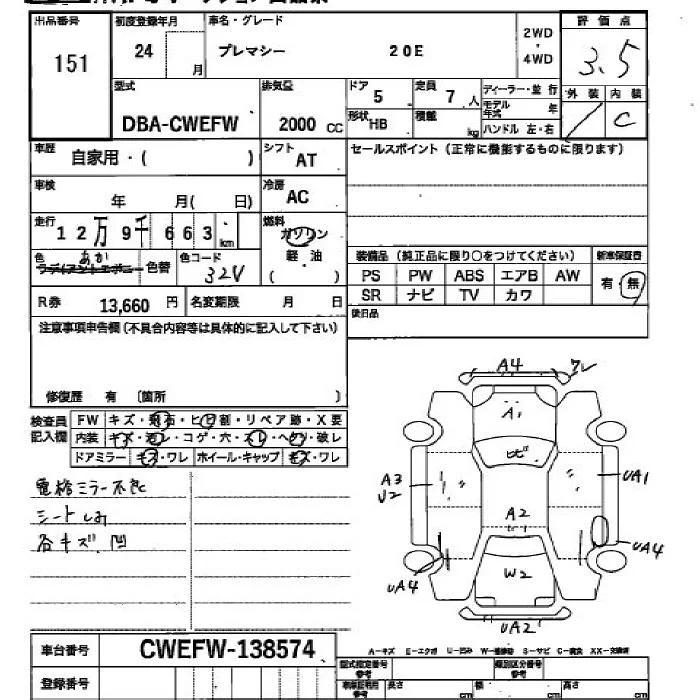 出品番号 初度登録年月 車名・グレード 評価点
151 24 月 プレマシー 20E 2WD・4WD 3.5
型式 排気量 ドア 定員 ディーラー・並行 外装 内装
DBA-CWEFW 2000 CC 5 7 人 モデル年式 年 / C
形状 HB 積載 kg ハンドル 左・右
車歴 自家用・( ) シフト AT セールスポイント(正常に機能するものに限ります)
車検 年 月( 日) 冷房 AC
走行 12万9千663 km 燃料 ガソリン
軽油
( )
色 あか 色替 色コード 32V
装備品(純正品に限り○をつけてください) 新車保証書
PS PW ABS エアB AW 有・無
SR ナビ TV カワ
後日品
R券 13,660 円 名変期限 月 日
注意事項申告欄(不具合内容等は具体的に記入して下さい)
修復歴 有 〔箇所 〕
検査員記入欄 FW キズ・飛石・ヒビ割・リペア跡・X要
内装 キズ・汚レ・コゲ・穴・スレ・ヘタリ・破レ
ドアミラー キズ・ワレ ホイール・キャップ キズ・ワレ
電格ミラー不良
シートしみ
各キズ 凹
A4 ワレ
A1
ヒビ
A3
U2
UA1
A2
UA4
UA4
W2
UA2
A-キズ E-エクボ U-凹み W-補修跡 S-サビ C-腐食 XX-交換済
車台番号 CWEFW-138574
登録番号
型式指定番号 参考 類別区分番号 参考
長さ cm 幅 cm 高さ cm